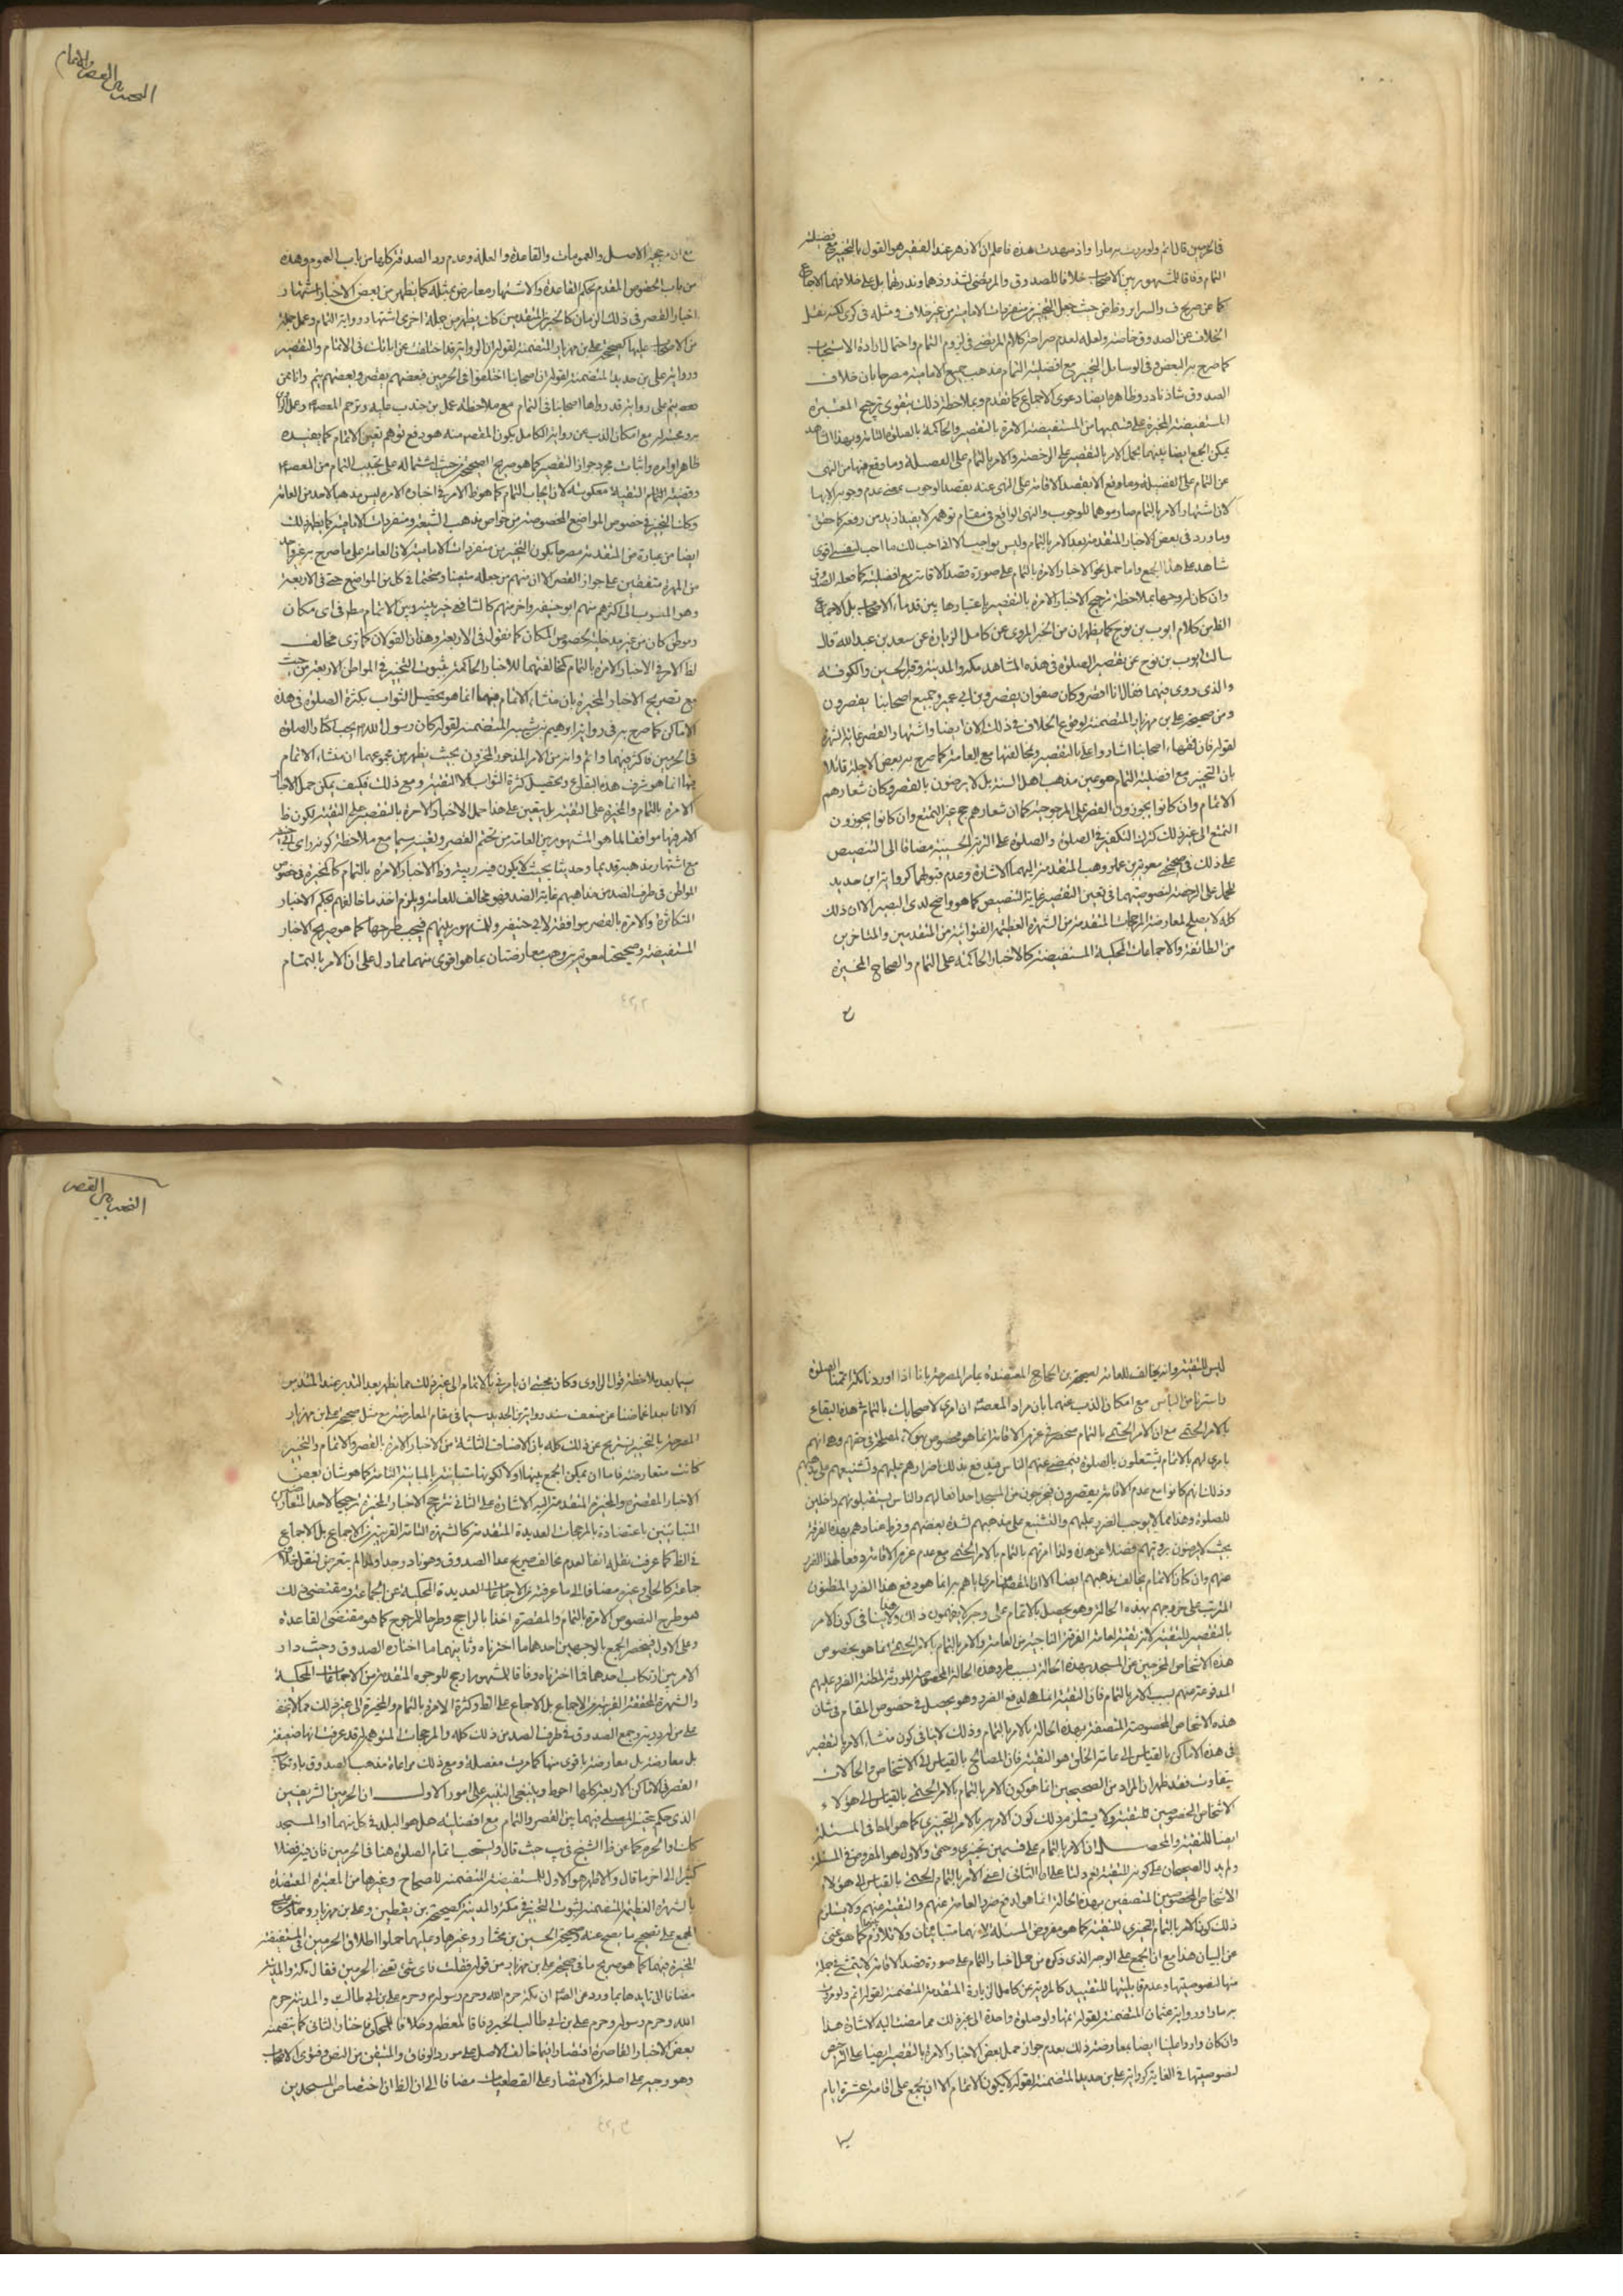 فالحرمين قال اتم ولو مررت به مارا واذ تمهدت هذه فاعلم ان الاظهر عند الفقير هو القول بالتخيير مع فضيلة
التمام وفاقا للمشهور بين الاصحاب خلافا للصدوق والمرتضى لشذوذهما وندرتهما بل على خلافهما الاجماع
كما عن صريح ف والسرائر وظاهر حيث جعل التخيير من متفردات الامامية من غير خلاف ومثله في كرى لكنه نقل
الخلاف عن الصدوق خاصة ولعله لعدم صراحة كلام المرتضى في لزوم التمام واحتمال ارادة الاستحباب
كما صرح به البعض وفي الوسايل التخيير مع افضلية التمام مذهب جميع الامامية مصرحا بان خلاف
الصدوق شاذ نادر وظاهره ايضا دعوى الاجماع كما تقدم وبملاحظة ذلك يتقوى ترجيح المعتبرة
المستفيضة المخيرة على قسيميها من المستفيضة الامرة بالتقصير والحاكمة بالصلوة التامة وبهذا الشاهد
يمكن الجمع ايضا بينهما بحمل الامر بالتقصير على الرخصة والامر بالتمام على الفضيلة وما وقع فيها من النهى
عن التمام على الفضيلة وما وقع الا بقصد الاقامة على النهى عنه بقصد الوجوب بمعنى عدم وجوبه الا بها
لان اشتهار الامر بالتمام صار موهما للوجوب والنهى الواقع في مقام توهمه لا يفيد ازيد من رفعه كما حقق
وما ورد في بعض الاخبار المتقدمة بعد الامر بالتمام وليس بواجب الا انى احب لك ما احب لنفسى اقوى
شاهد على هذا الجمع واما حمل نحو الاخبار الامرة بالتمام على صورة قصد الاقامة مع افضليته كما فعله الصدوق
وان كان له وجها بملاحظة ترجيح الاخبار الامرة بالتقصير باعتبارها بين قدماء الاصحاب بل الاجماع
الظ من كلام ايوب بن نوح كما يظهر ان من الخبر المروى عن كامل الزيارة عن سعد بن عبد الله قال
سالت ايوب بن نوح عن تقصير الصلوة في هذه المشاهد مكة والمدينة وقبر الحسين والكوفة
والذى روى فيها فقال انا اقصر وكان صفوان يقصر وابن ابى عمير وجميع اصحابنا يقصرون
ومن صحيحة على بن مهزيار المتضمنة لوقوع الخلاف في ذلك الان ايضا واشتهار القصر غاية الشهرة
لقوله فان فقهاء اصحابنا اشاروا على بالتقصير ومخالفتها مع العامة كما صرح به بعض الاجلة قائلا
بان التخيير مع افضلية التمام هو عين مذهب اهل السنة بل لا يرضون بالقصر وكان شعارهم
الاتمام وان كانوا يجوزون القصر على المرجوحية كما ان شعارهم حج غير التمتع وان كانوا يجوزون
التمتع الى غير ذلك كترك التكفير في الصلوة والصلوة على التربة الحسينية مضافا الى التنصيص
على ذلك في صحيحى معوية بن عمار وهب المتقدمة اليهما الاشارة وعدم قبولهما كرواية ابن حديد
للحمل على الرخصة لنصوصيتهما في تعين التقصير غاية التنصيص كما هو واضح لدى البصير الا ان ذلك
كله لا يصلح لمعارضة المرجحات المتقدمة من الشهرة العظيمة الفتوائية من المتقدمين والمتاخرين
من الطائفة والاجماعات المحكية المستفيضة كالاخبار الحاكمة على التمام والصحاح المخيرة
ع
التخيير بين القصر والاتمام
مع ان مرجحية الاصل والعمومات والقاعدة والعلة وعدم ورد الصدقة كلها من باب العموم وهذه
من باب الخصوص المقدم بحكم القاعدة والاشتهار معارض بمثله كما يظهر من بعض الاخبار اشتهار
اخبار القصر في ذلك الزمان كالخبرين المتقدمين كان يظهر من جملة اخرى اشتهار رواية التمام وعمل جملة
من الاصحاب عليها كصحيحة على بن مهزيار المتضمنة لقوله ان الرواية قد اختلفت عن ابائك في الاتمام والتقصير
ورواية على بن حديد المتضمنة لقوله ان اصحابنا اختلفوا في الحرمين فبعضهم يقصر وبعضهم يتم وانا ممن
يتم على رواية قد رواها اصحابنا في التمام مع ملاحظة عمل بن جندب عليه وترحم المعصوم
مع امكان الذب عن رواية الكامل بكون المقصود منه هو دفع توهم تعين الاتمام كما يفيده
ظاهر اوامره واثبات مجرد جواز التقصير كما هو صريح الصحيحة حيث اشتماله على تحبيب التمام من المعصوم
وقضية التمام التقية معكوسة لان ايجاب التمام كما هو ظ الامر في اخباره الامرة ليس مذهبا لاحد من العامة
وكذا التخيير في خصوص المواضع المخصوصة من خواص مذهب الشيعة ومتفردات الامامية كما يظهر ذلك
ايضا من عبارة من المتقدمة مصرحا بكون التخيير من متفردات الامامية لان العامة على ما صرح به غير واحد
من المهرة متفقين على جواز القصر الا ان منهم من جعله متعينا ومختارا في كل من المواضع حتى في الاربعة
وهو المنسوب الى اكثرهم منهم ابو حنيفة واخر منهم كالشافعى خير بينه وبين الاتمام مطلقا في اى مكان
وموطن كان من غير مدخلية لخصوص المكان كما نقول في الاربعة وهذان القولان كما ترى مخالف
لظ الامر في الاخبار الامرة بالتمام كمخالفتهما للاخبار الحاكمة بثبوت التخيير في المواطن الاربعة من حيث
مع تصريح الاخبار المخيرة بان منشاء الاتمام فيها انما هو تحصيل الثواب بكثرة الصلوة في هذه
الاماكن كما صرح به في رواية ابراهيم بن شيبه المتضمنة لقوله كان رسول الله يحب اكثار الصلوة
في الحرمين فاكثر فيهما واتم وانه من الامر المذخور المخزون بحيث يظهر من مجموعهما ان منشاء الاتمام
فيها انما هو شرف هذه البقاع وتحصيل كثرة الثواب لا التقية ومع ذلك فكيف يمكن حمل الاخبار
الامرة بالتمام والمخيرة على التقية بل يتعين على هذا حمل الاخبار الامرة بالتقصير على التقية لكون ظ
الامر فيها موافقا لما هو المشهور بين العامة من تحتم القصر وتعينه سيما مع ملاحظة كونه راى ابى حنيفة
مع اشتهار مذهبه قديما وحديثا بحيث لا يكون فيه ريبة وظ الاخبار الامرة بالتمام كالمخيرة في خصوص
المواطن في طرف الضد من مذاهبهم غاية الضد فهو مخالف للعامة ويلزم اخذ ما خالفهم بحكم الاخبار
المتكاثرة والامرة بالقصر موافقة لابى حنيفة والمشهور بينهم فيجب طرحها كما هو صريح الاخبار
المستفيضة وصحيحتا معوية بن وهب معارضتان بما هو اقوى منهما مما دل على ان الامر بالتمام
ليس للتقية وانه يخالف للعامة لصحيحة بن الحجاج المعتضدة بما مر المصرحة بانا اذا اوردنا مكة اتممنا الصلوة
واستترنا من الناس مع امكان الذب عنهما بان مراد المعصوم ان امرى لاصحابك بالتمام في هذه البقاع
بالامر الحتمى مع ان الامر الحتمى بالتمام منحصر في عزم الاقامة انما هو مخصوص بهؤلاء لمصلحة في حقهم وهى انهم
بامرى لهم بالاتمام يشتغلون بالصلوة فيمضى عنهم الناس فيدفع بذلك اضرارهم عليهم وتشنيعهم على مذهبهم
وذلك انهم كانوا مع عدم الاقامة يقصرون فيخرجون من المسجد احدا نعالهم والناس يستقبلونهم داخلين
للصلوة وهذا مما لا يوجب الضرر عليهم والتشنيع على مذهبهم لشدة بغضهم وفرط عنادهم بهذه الفرقة
بحيث لا يرضون برؤيتهم فضلا عن هذه ولذا امرتهم بالتمام بالامر الحتمى مع عدم عزم الاقامة دفعا لهذا الضرر
عنهم وان كان الاتمام يخالف مذهبهم ايضا الا ان المقصود من امرى اياهم به انما هو دفع هذا الضرر المظنون
المترتب على خروجهم بهذه الحالة وهو يحصل بالاتمام على وجه لا يفهمون ذلك ولا ينافى كون الامر
بالتقصير للتقية لانه تقية لعامة الفرقة الناجية من العامة والامر بالتمام بالامر الحتمى انما هو بخصوص
هذه الاشخاص المخرجين عن المسجد بهذه الحالة بسبب طرو هذه الحالة المخصوصة المورثة لمظنة الضرر عليهم
المدفوعة عنهم بسبب الامر بالتمام فان التقية انما هى لدفع الضرر وهو يحصل في خصوص المقام في شان
هذه الاشخاص المخصوصة المتصفة بهذه الحالة بالامر بالتمام وذلك لا ينافى كون منشاء الامر بالتقصير
في هذه الاماكن بالقياس الى عامة الخلق هو التقية فان المصالح بالقياس الى الاشخاص والحالات
يتفاوت فقد ظهر ان المراد من الصحيحين انما هو كون الامر بالتمام بالامر الحتمى بالقياس الى هؤلاء
الاشخاص المخصوصين للتقية ولا يستلزم ذلك كون الامر بالامر التخييرى كما هو المدعى في المسئلة
ايضا للتقية والمحصل ان الامر بالتمام على قسمين تخييرى وحتمى والاول هو المفروض في المسئلة
ولم يدل الصحيحان على كونه للتقية نعم دلتا على ان الثانى اعنى الامر بالتمام الحتمى بالقياس الى هؤلاء
الاشخاص المخصوصين المتصفين بهذه الحالة انما هو لدفع ضرر العامة عنهم والتقية منهم ولا يستلزم
ذلك كون الامر بالتمام التخييرى للتقية كما هو مفروض المسئلة لانهما متباينان ولا تلازم بينهما كما هو غنى
عن البيان هذا مع ان الجمع على الوجه الذى ذكره من حمل اخبار التمام على صورة قصد الاقامة لا يتمشى في جملة
منها لنصوصيتها وعدم قابليتها للتقييد كالمروية عن كامل الزيارة المتقدمة المتضمنة لقوله اتم ولو مررت
به مارا ورواية عثمان المتضمنة لقوله اتمها ولو صلوة واحدة الى غير ذلك مما مضت اليه الاشارة هذا
وان كان واردا علينا ايضا بمعارضة ذلك بعدم جواز حمل بعض الاخبار الامرة بالتقصير ايضا على الترخيص
لنصوصيتها في الغاية كرواية على بن حديد المتضمنة لقوله لا يكون الاتمام الا ان يجمع على اقامة عشرة ايام
سيما
التخيير بين القصر
سيما بعد ملاحظة قول الراوى وكان محبتى ان يامرنى بالاتمام الى غير ذلك مما يظهر بعد التدبر عند المتدبر
الا انا بعد اغماضنا عن ضعف سند رواية بن الحديد سيما في مقام المعارضة مع مثل صحيحة على بن مهزيار
المصرحة بالتخيير نستريح عن ذلك كله بان الاصناف الثلثة من الاخبار الامرة بالقصر والاتمام والتخيير
كانت متعارضة فاما ان يمكن الجمع بينها اولا لكونها متباينة بالمباينة التامة كما هو شان بعض
الاخبار المقصرة والمخيرة المتقدمة اليه الاشارة على الثانى نرجح الاخبار المخيرة ترجيحا لاحد المتعارضين
المتباينين باعتضاده بالمرجحات العديدة المتقدمة كالشهرة التامة القريبة من الاجماع بل الاجماع
في الظ كما عرفت نقله انفا لعدم مخالف صريح عدا الصدوق وهو نادر جدا ولذا لم يتعرض لنقل خلافه
جماعة كالحلى وغيره مضافا الى ما عرفته من الاجماعات العديدة المحكية عن الجماعة ومقتضى ذلك
هو طرح النصوص الامرة بالتمام والمقصرة اخذا بالراجح وطرحا للمرجوح كما هو مقتضى القاعدة
وعلى الاول فينحصر الجمع بالوجهين احدهما ما اخترناه وثانيهما ما اختاره الصدوق وحيث دار
الامر بين ارتكاب احدهما فما اخترناه وفاقا للمشهور ارجح للوجوه المتقدمة من الاجماعات المحكية
والشهرة المحققة القريبة من الاجماع بل الاجماع على الظ وكثرة الامرة بالتمام والمخيرة الى غير ذلك وما لا يخفى
على من له دربة وجمع الصدوق في طرف الضد من ذلك كله والمرجحات المتوهمة له قد عرفت انها ضعيفة
بل معارضة بل معارضة باقوى منها كما مرت مفصلة ومع ذلك مراعاة مذهب الصدوق بارتكاب
القصر في الاماكن الاربعة كلها احوط وينبغى التنبيه على امور الاول ان الحرمين الشريفين
الذى حكم بتخيير المصلى فيهما بين القصر والتمام مع افضليته هل هو البلد في كل منهما او المسجد
كان او الحرم كما عن ظ الشيخ في يب حيث قال ويستحب اتمام الصلوة هنا في الحرمين فان فيه فضلا
كثيرا الى اخر ما قال والاظهر هو الاول للمستفيضة المتضمنة للصحاح وغيرها من المعتبرة المعتضدة
بالشهرة العظيمة المتضمنة لثبوت التخيير في مكة والمدينة كصحيحة بن يقطين وعلى بن مهزيار وحماد بن عيسى
المجمع على تصحيح ما يصح عنه وصحيحة الحسين بن مختار وغيرها وعليهما حملوا اطلاق الحرمين في المستفيضة
المخيرة فيهما كما هو صريح ما في صحيحة على بن مهزيار من قوله فقلت فاى شئ تعنى بالحرمين فقال مكة والمدينة
مضافا الى تايدها بما ورد عن الصادق ان مكة حرم الله وحرم رسوله وحرم على بن ابى طالب والمدينة حرم
الله وحرم رسوله وحرم على بن ابى طالب الخبر وفاقا للمعظم وخلافا للمحكى فاختار الثانى كما يتضمنه
بعض الاخبار القاصرة اقتصارا فيما خالف الاصل على مورد الوفاق والمتيقن من النص وفتوى الاصحاب
وهو وجيه على اصله من الاقتصار على القطعيات مضافا الى ان الظ ان اختصاص المسجدين